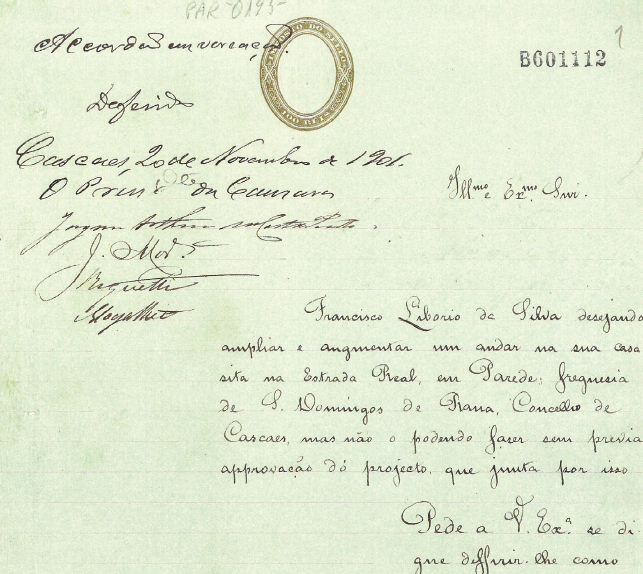 PAR-0195
1
B601112
Accordão em vereação.
Deferido
Cascaes, 20 de Novembro de 1901.
O Presid.te da Camara
Jayme Arthur da Costa Pinto.
J. Mod.
IMPOSTO DO SELLO
100 REIS
Ill.mo e Ex.mo Snr.
Francisco Liborio da Silva desejando
ampliar e augmentar um andar na sua casa
sita na Estrada Real, em Parede, freguesia
de S. Domingos de Rana, Concelho de
Cascaes, mas não o podendo fazer sem previa
approvação do projecto, que junta por isso
Pede a V. Ex.a se di-
gne deffirir-lhe como